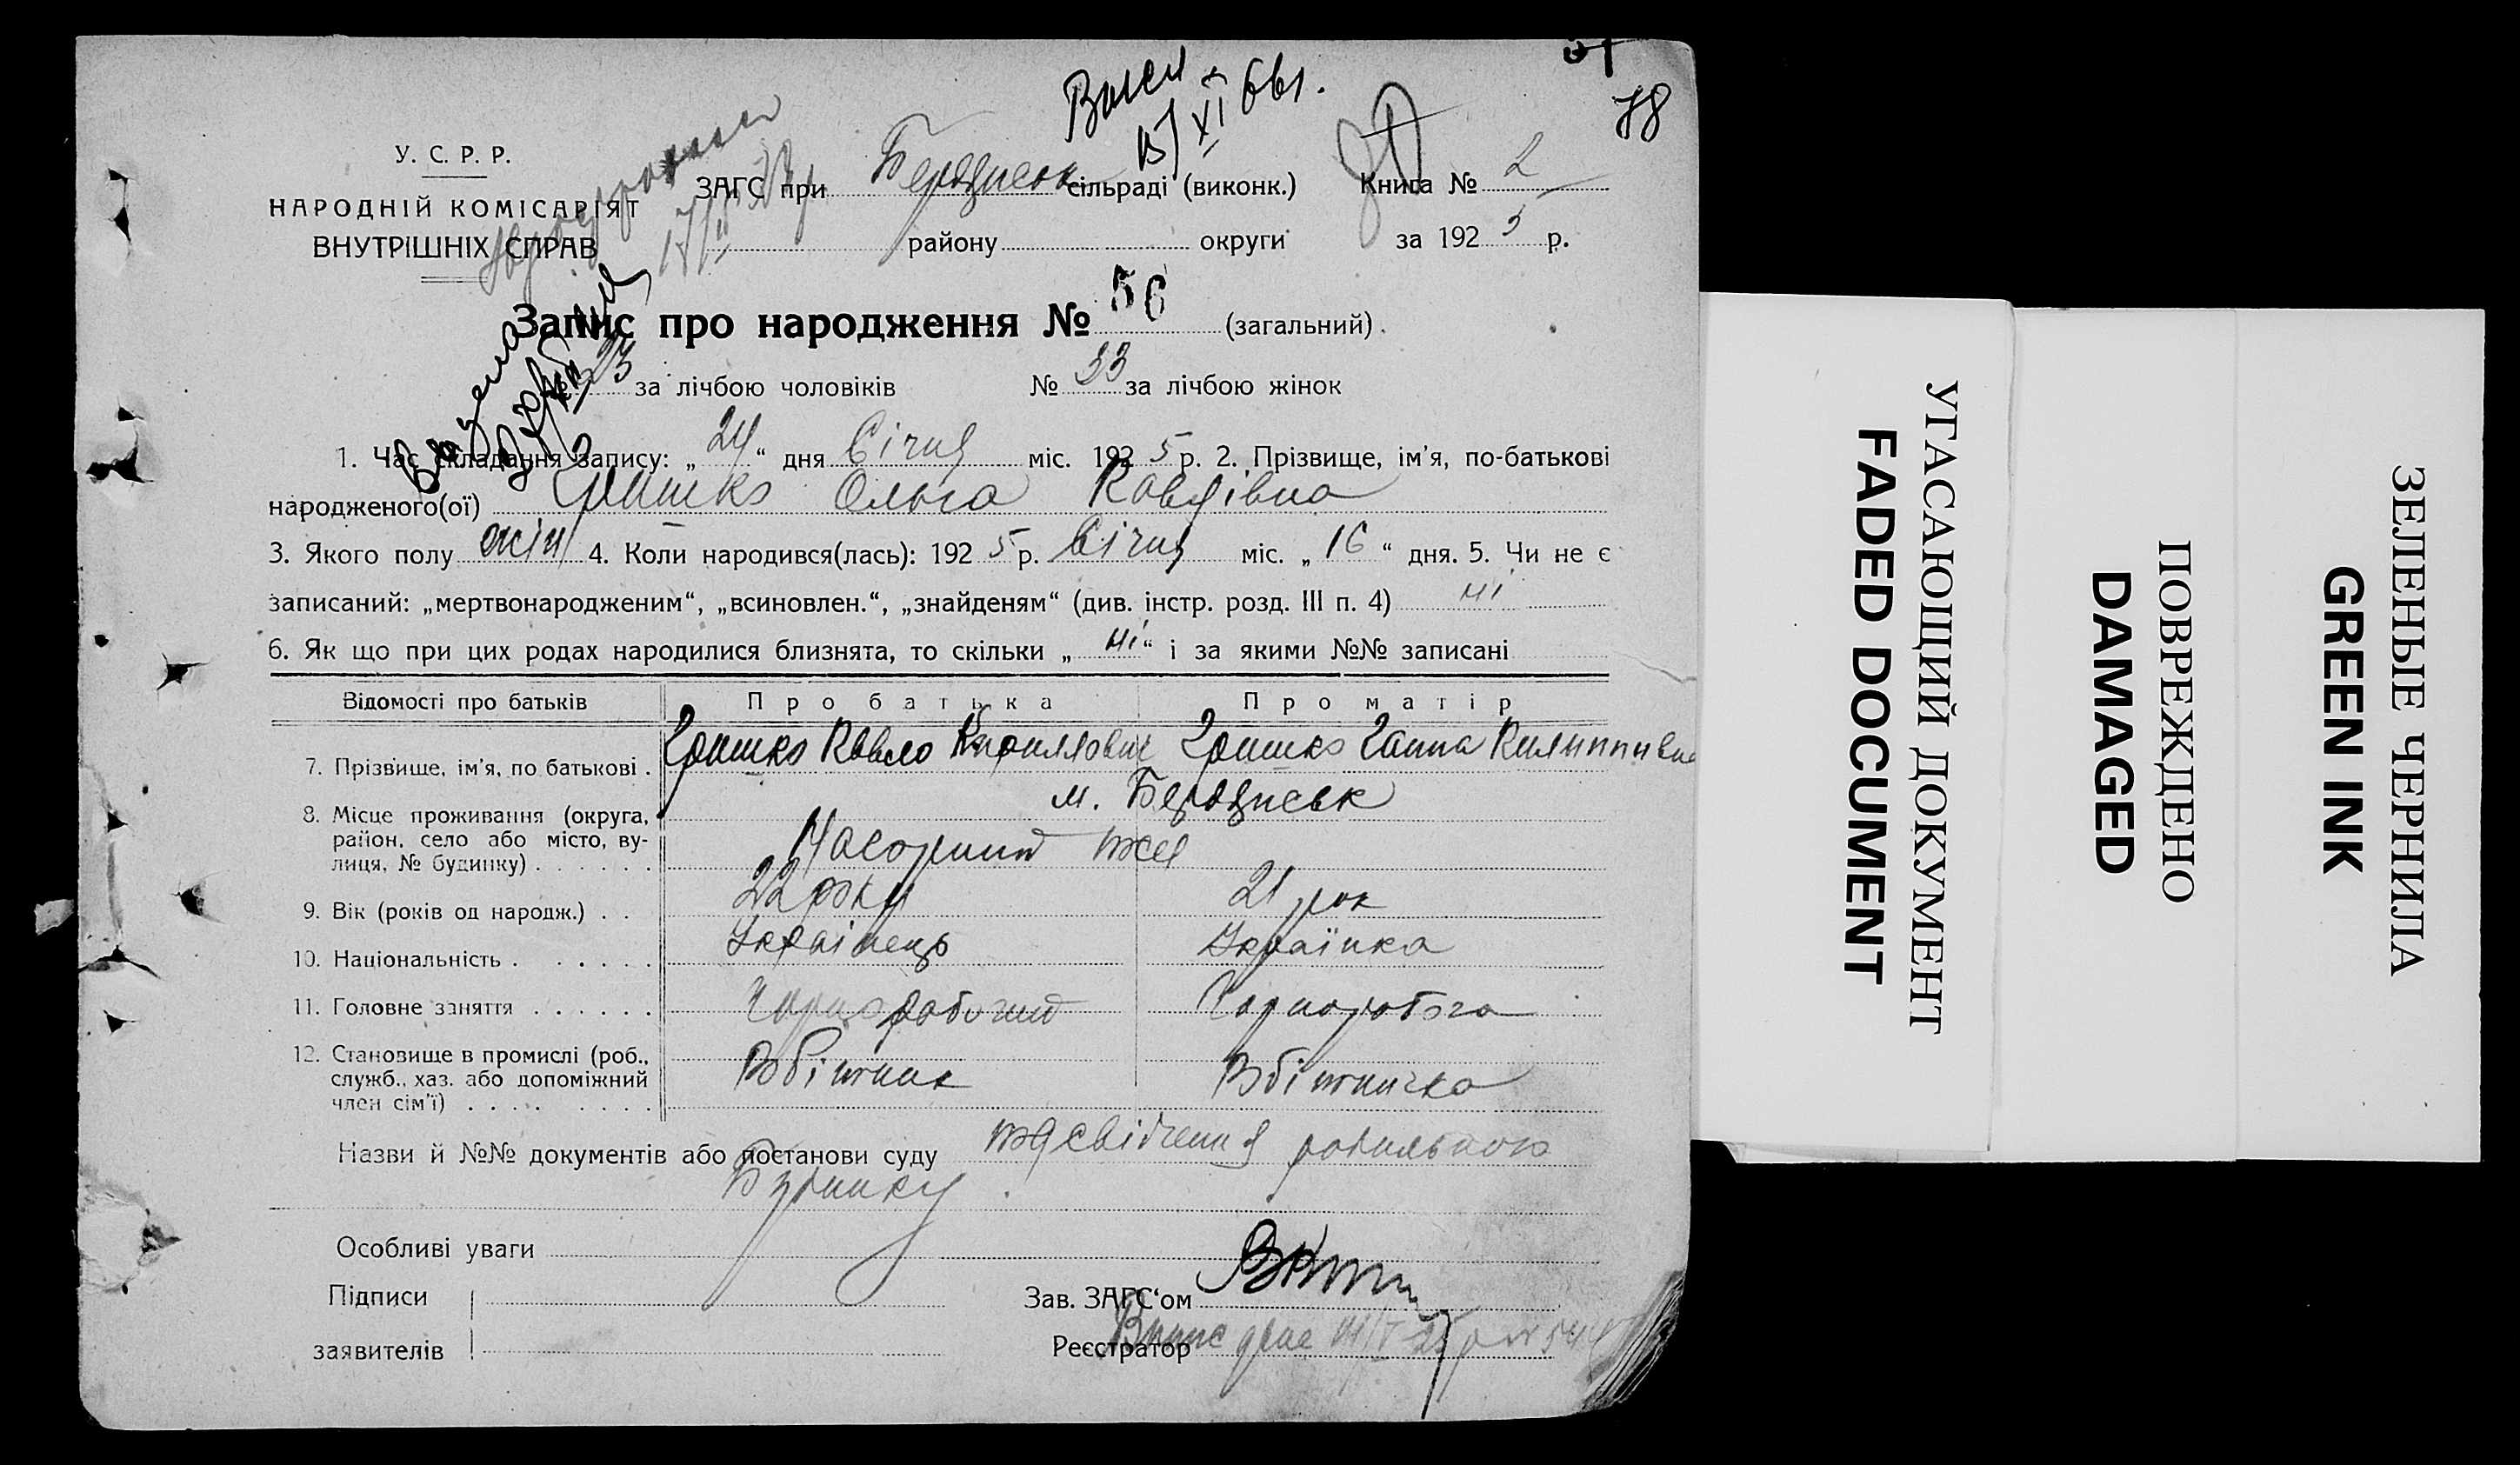 78
У. С. Р. Р.
НАРОДНІЙ КОМІСАРІЯТ
ВНУТРІШНІХ СПРАВ
ЗАГС при Бердянськ сільраді (виконк.) Книга № 2
району округи за 1925 р.
Запис про народження № 56 (загальний).
№ 23 за лічбою чоловіків № 33 за лічбою жінок
1. Час складання запису: „24“ дня Січня міс. 1925 р. 2. Прізвище, ім’я, по-батькові
народженого(ої) Гришко Ольга Павлівна
3. Якого полу жін 4. Коли народився(лась): 1925 р. Січня міс. „16“ дня. 5. Чи не є
записаний: „мертвонародженим“, „всиновлен.“, „знайденям“ (див. інстр. розд. III п. 4) ні
6. Як що при цих родах народилися близнята, то скільки „ні“ і за якими №№ записані
Відомості про батьків Про батька Про матір
7. Прізвище, ім’я, по батькові . Гришко Павло Кириллович Гришко Ганна Пилиппивна
8. Місце проживання (округа, район, село або місто, вулиця, № будинку) . . . . . . м. Бердянськ
9. Вік (років од народж.) . . 22 роки 21 рок
10. Національність . . . . . . Українець Українка
11. Головне заняття . . . . . . Чорнорабочий Чорноробоча
12. Становище в промислі (роб., служб., хаз. або допоміжний член сім’ї) . . . . . . . . Робітник Робітничка
Назви й №№ документів або постанови суду посвідчення родильного
Будинку
Особливі уваги
Підписи
заявителів
Зав. ЗАГС‘ом
Реєстратор
УГАСАЮЩИЙ ДОКУМЕНТ
FADED DOCUMENT
ПОВРЕЖДЕНО
DAMAGED
ЗЕЛЕНЫЕ ЧЕРНИЛА
GREEN INK